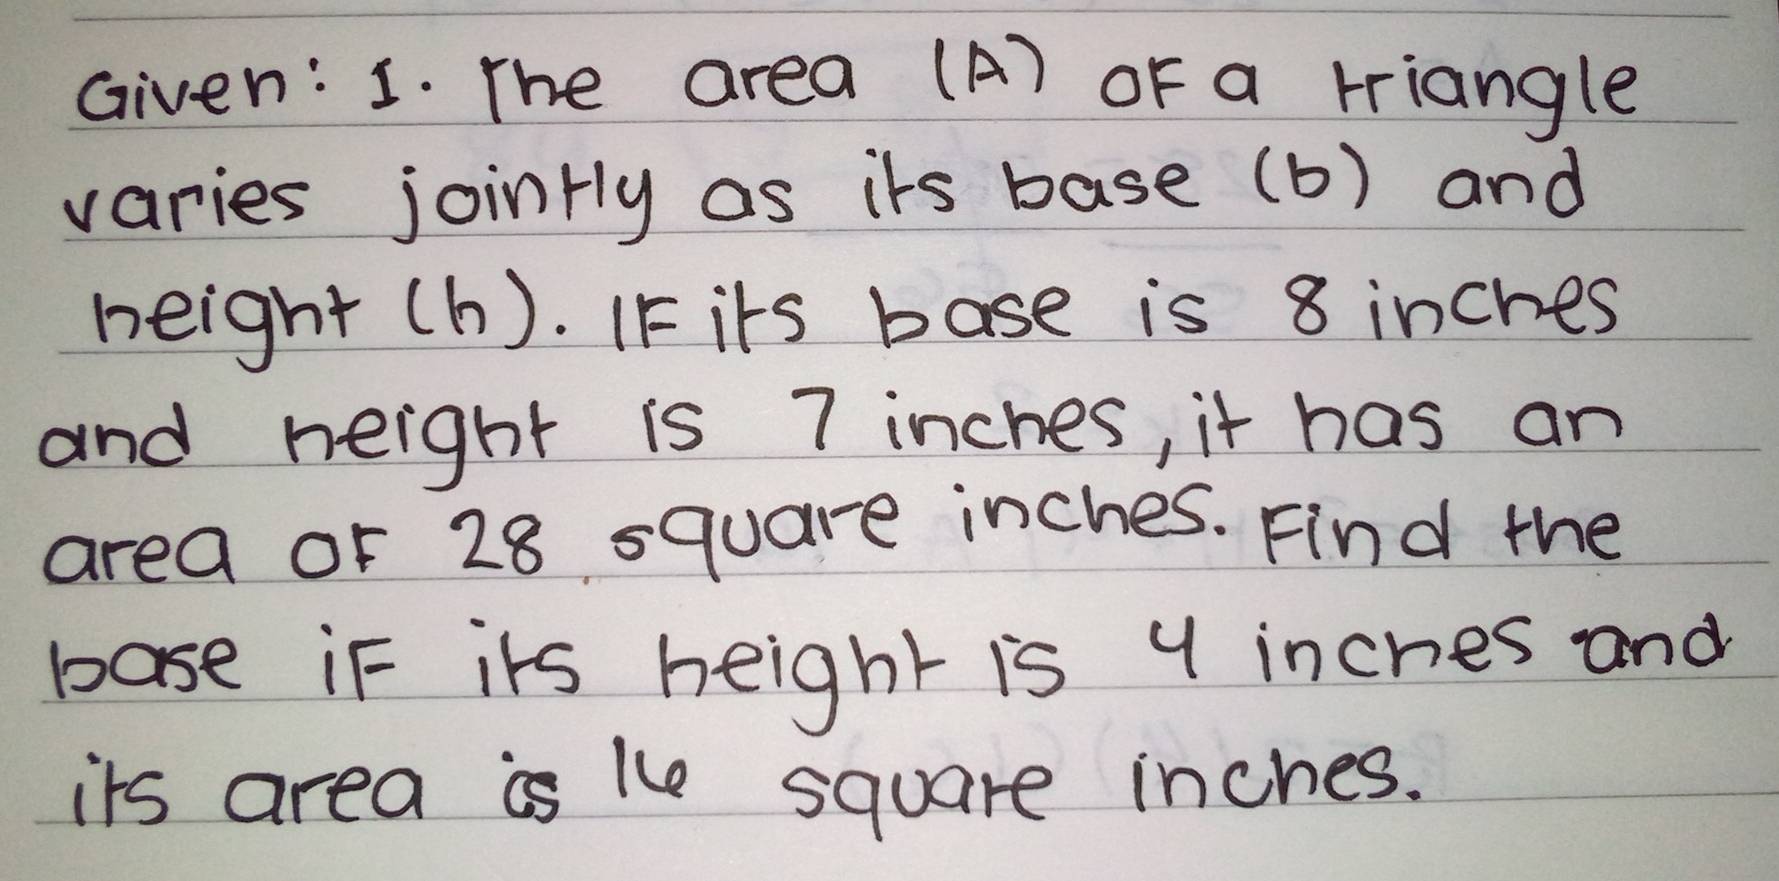 Given: 1. The area (A) OF a triangle
varies jointly as its base (b) and
height (h). IF its base is 8 inches
and height is 7 inches, it has an
area OF 28 square inches. Find the
base iF its height is 4 inches and
its area is 16 square inches.